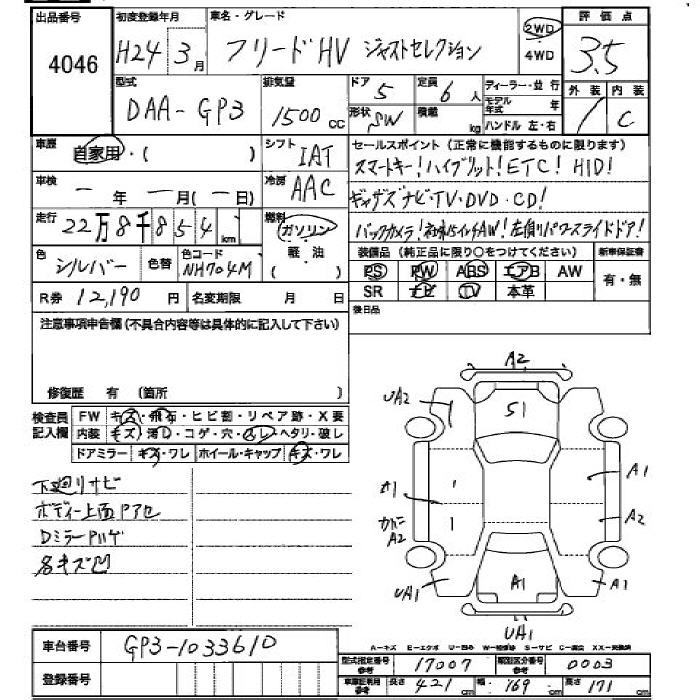 出品番号 初度登録年月 車名・グレード 評価点
4046 H24 3月 フリードHV ジャストセレクション 2WD 4WD 3.5
型式 排気量 ドア 定員 ディーラー・並行 外装 内装
DAA-GP3 1500 cc 5 6人 モデル年式 年 1 C
形状 SW 積載 kg ハンドル 左・右
車歴 自家用・( ) シフト IAT セールスポイント(正常に機能するものに限ります)
スマートキー!ハイブリット!ETC! HID!
車検 ー年ー月(ー日) 冷房 AAC
ギャザズナビ・TV・DVD・CD!
走行 22万8千854 km 燃料 ガソリン 軽・油
バックカメラ!純正15インチAW!左側パワースライドドア!
色 シルバー 色替 色コード NH704M
装備品(純正品に限り○をつけてください) 新車保証書
PS PW ABS エアB AW 有・無
SR ナビ TV 本革
R券 12,190円 名変期限 月 日
後日品
注意事項申告欄(不具合内容等は具体的に記入して下さい)
修復歴 有 (箇所 )
検査員記入欄 FW キズ・飛石・ヒビ割・リペア跡・X要
内装 キズ・汚レ・コゲ・穴・スレ・ヘタリ・破レ
ドアミラー キズ・ワレ ホイール・キャップ キズ・ワレ
下廻りサビ
ボディー上面Pアセ
DミラーPハゲ
各キズ凹
A2
UA2 S1
A1 A1
カバーA2 A2
UA1 A1 A1
UA1
A-キズ E-エクボ U-凹み W-補修跡 S-サビ C-腐食 XX-交換済
車台番号 GP3-1033610
型式指定番号 参考 17007 類別区分番号 参考 0003
登録番号
車庫証明用 参考 長さ 421 cm 幅 169 cm 高さ 171 cm